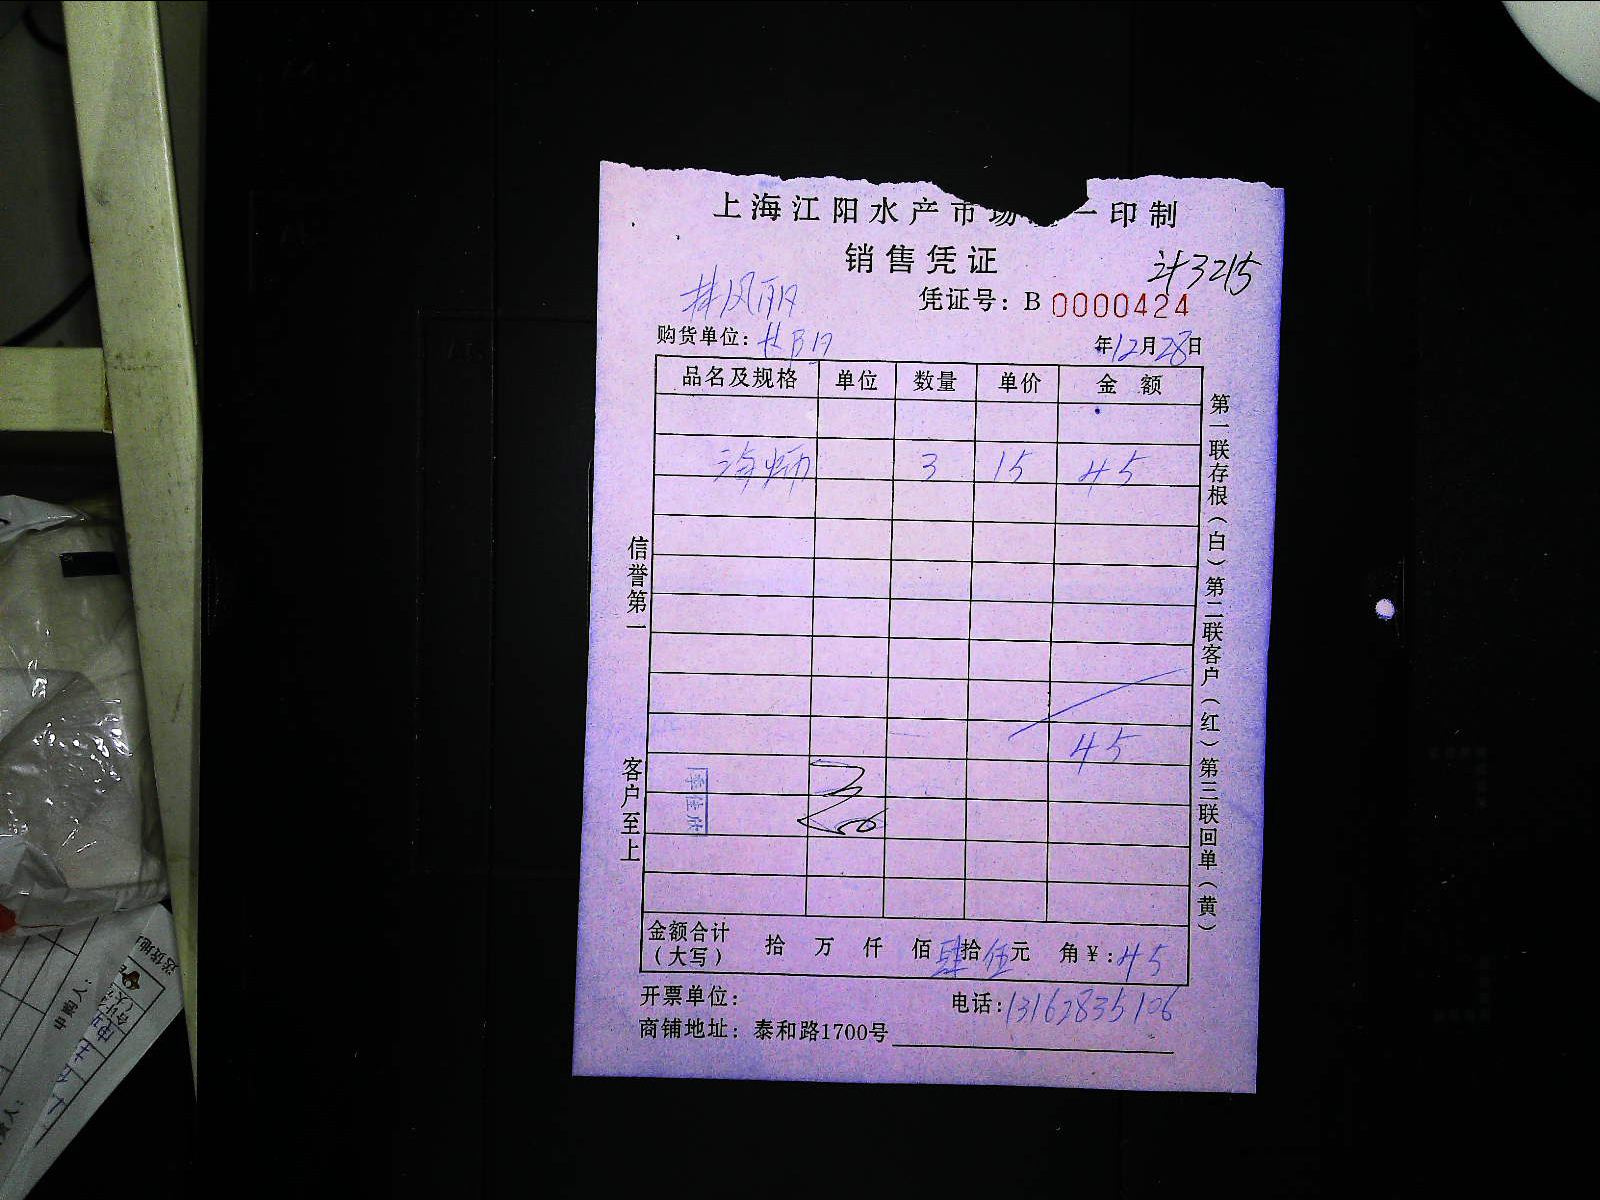 上海江阳水产市场 一印制
销售凭证
计3215
凭证号：B 0000424
购货单位：
年12月28日
品名及规格 单位 数量 单价 金 额
海蛎 3 15 45
45
信誉第一
客户至上
第一联存根（白）第二联客户（红）第三联回单（黄）
金额合计（大写） 拾 万 仟 佰肆拾伍元 角￥：45
开票单位：
电话：13162835106
商铺地址：泰和路1700号
申购人：
送货地